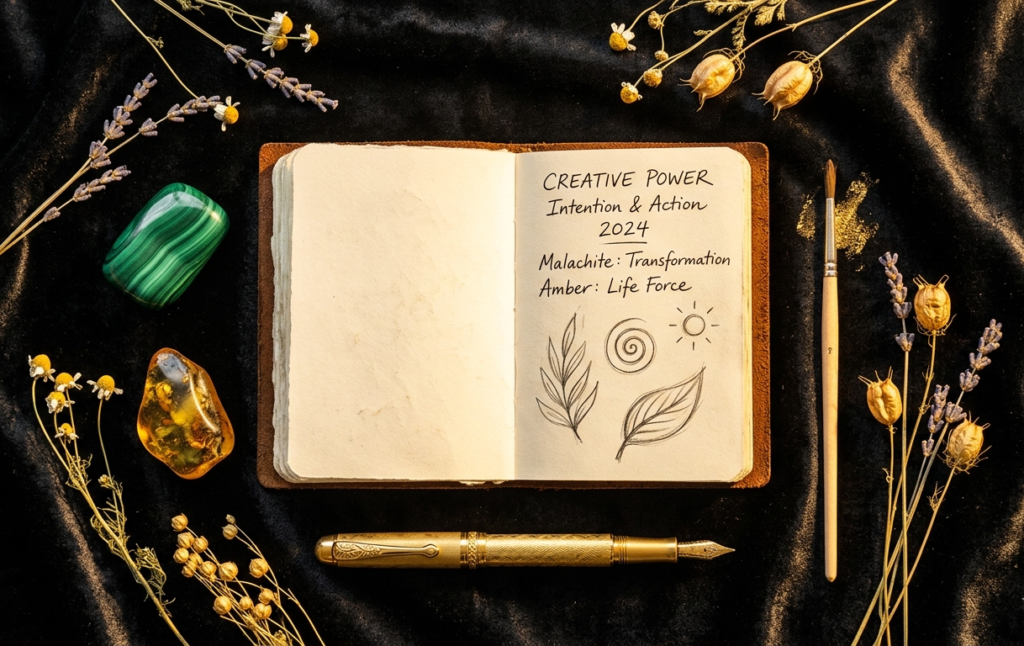 CREATIVE POWER
Intention & Action
2024
Malachite: Transformation
Amber: Life Force